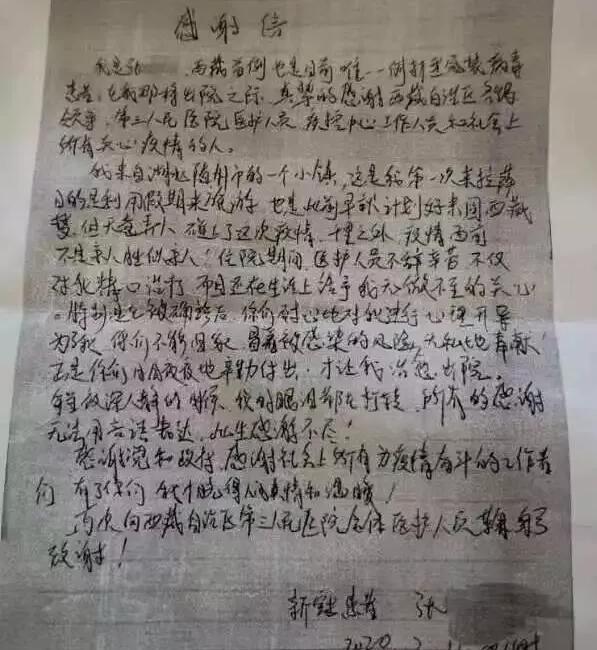 感谢信
我是张 西藏首例也是目前唯一一例新型冠状病毒
患者，在我即将出院之际，真挚的感谢西藏自治区各级
领导、第三人民医院医护人员 疾控中心工作人员和社会上
所有关心疫情的人。
我来自湖北随州市的一个小镇，这是我第一次来拉萨
目的是利用假期来旅游 也是此前早就计划好来圆西藏
梦，但天意弄人 碰上了这次疫情，千里之外，疫情面前
不是亲人胜似亲人！住院期间，医护人员不辞辛苦 不仅
对我精心治疗 而且还在生活上给予我无微不至的关心
。特别是在被确诊后，你们耐心地对我进行心理开导
为了我 你们不能回家 冒着被感染的风险，无私地奉献
正是你们日日夜夜地辛勤付出，才让我治愈出院。
每当夜深人静的时候，我的眼泪都在打转，所有的感谢
无法用言语表达，此生感谢不尽！
感谢党和政府，感谢社会上所有为疫情奋斗的工作者
们 有了你们 我才觉得人间真情和温暖！
再次向西藏自治区第三人民医院全体医护人员鞠躬
致谢！
新冠患者 张
2020 2